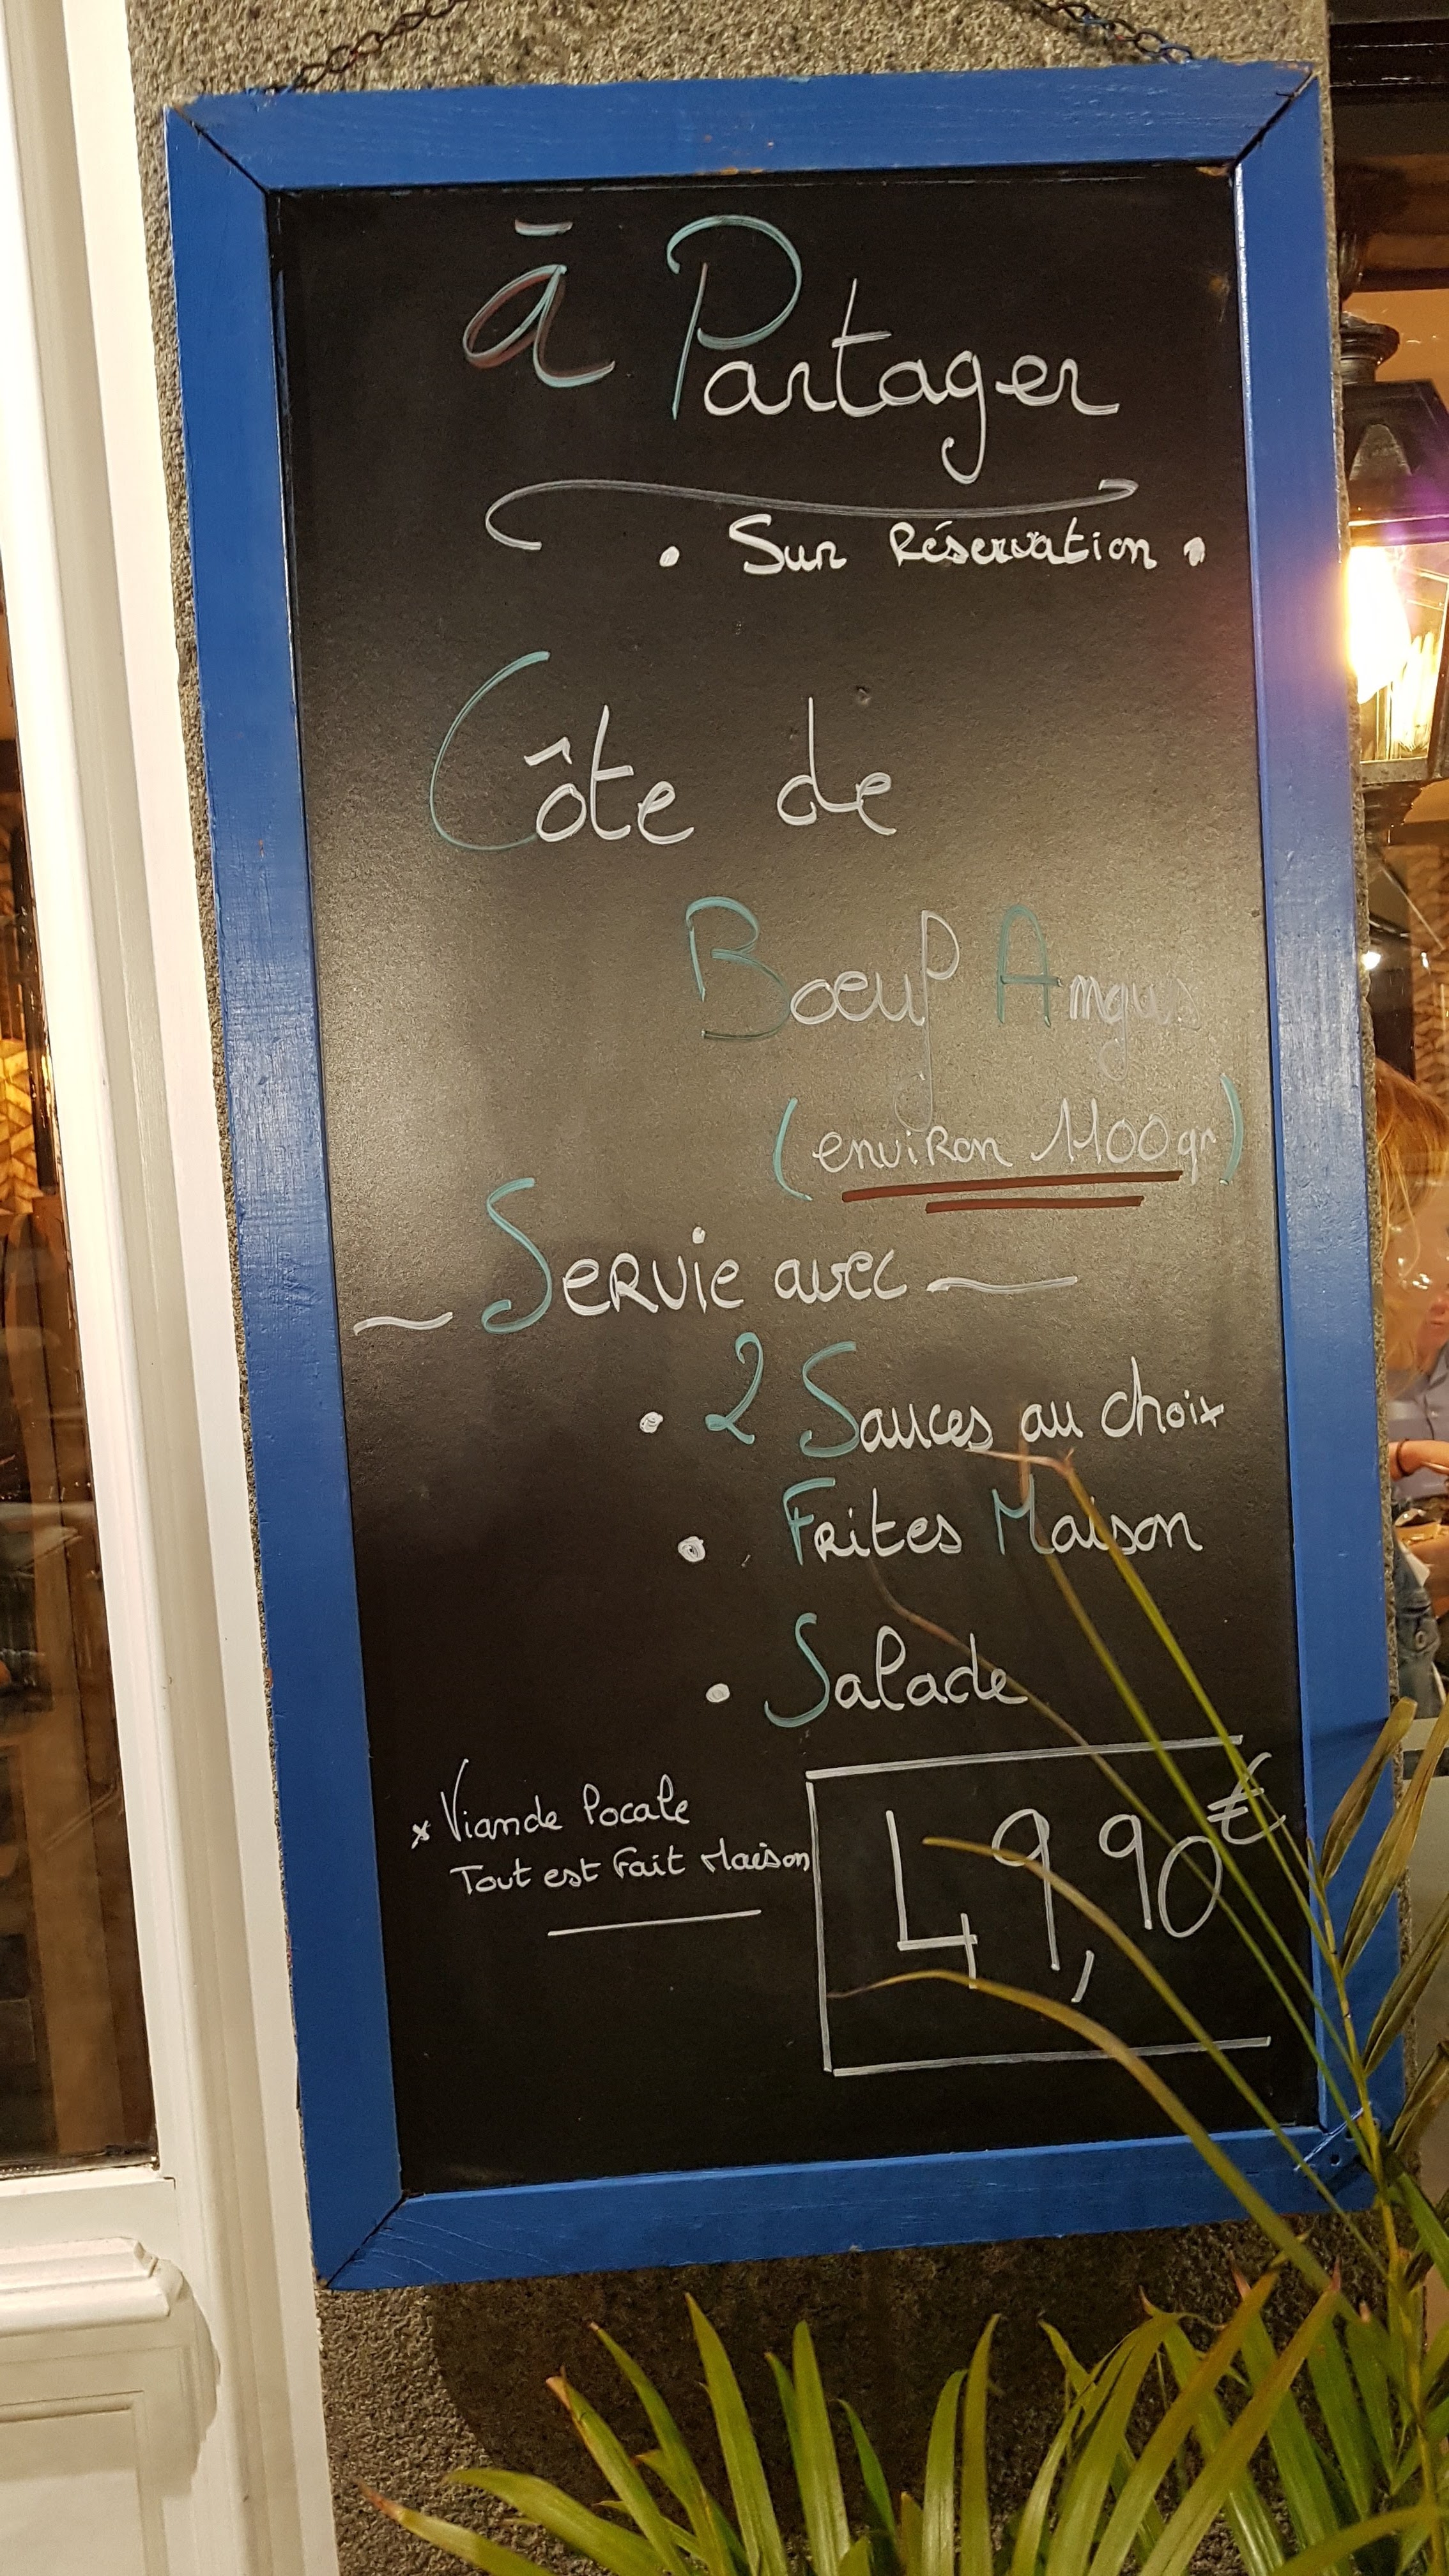 à Partager
• Sur Réservation •
Côte de
Bœuf Angus
(environ 1100gr)
Servie avec
• 2 Sauces au choix
• Frites Maison
• Salade
* Viande locale
Tout est Fait Maison
49,90€